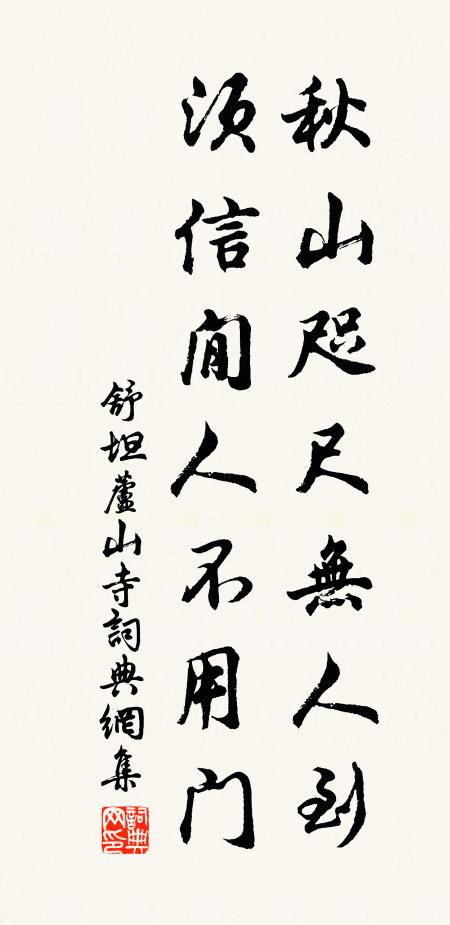 秋山咫尺無人到
須信閒人不用門
舒坦蘆山寺詞典網集
詞典网印